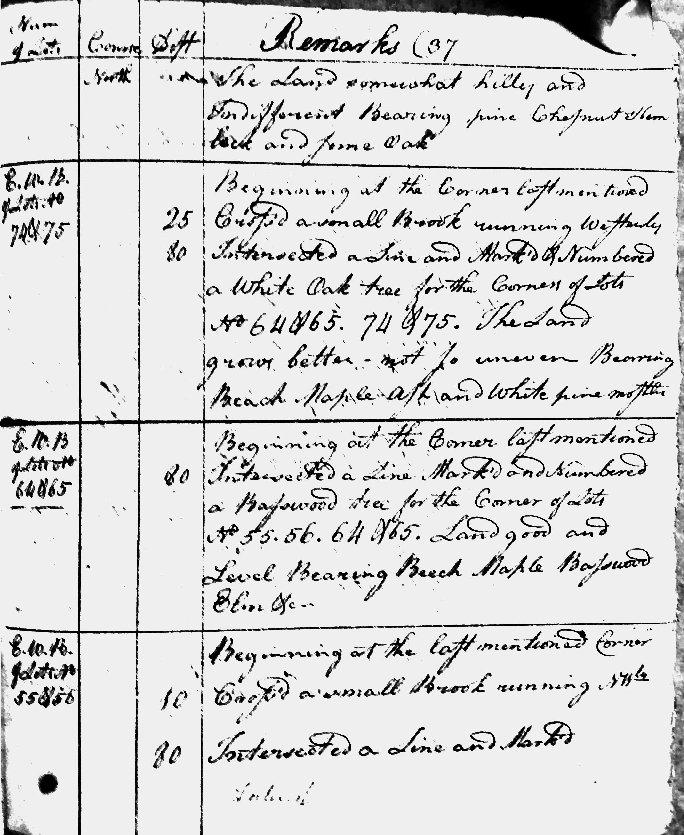 Num of Lots Course Dist Remarks (37
North The Land somewhat hilly and
Indifferent Bearing pine Chesnut Hem
lock and some Oak
E. W. B. of Lots No 74 & 75 Beginning at the Corner last mentioned
25 Cross'd a small Brook running Westerly
80 Intersected a Line and Mark'd & Numbered
a White Oak tree for the Corners of Lots
No 64 & 65. 74 & 75. The Land
grows better - not so uneven Bearing
Beach Maple Ash and White pine mostly
E. W. B of Lots No 64 & 65 Beginning at the Corner last mentioned
80 Intersected a Line Mark'd and Numbered
a Basswood tree for the Corner of Lots
No 55. 56. 64 & 65. Land good and
Level Bearing Beech Maple Basswood
Elm &c--
E. W. B. of Lots No 55 & 56 Beginning at the last mentioned Corner
10 Cross'd a small Brook running
80 Intersected a Line and Mark'd